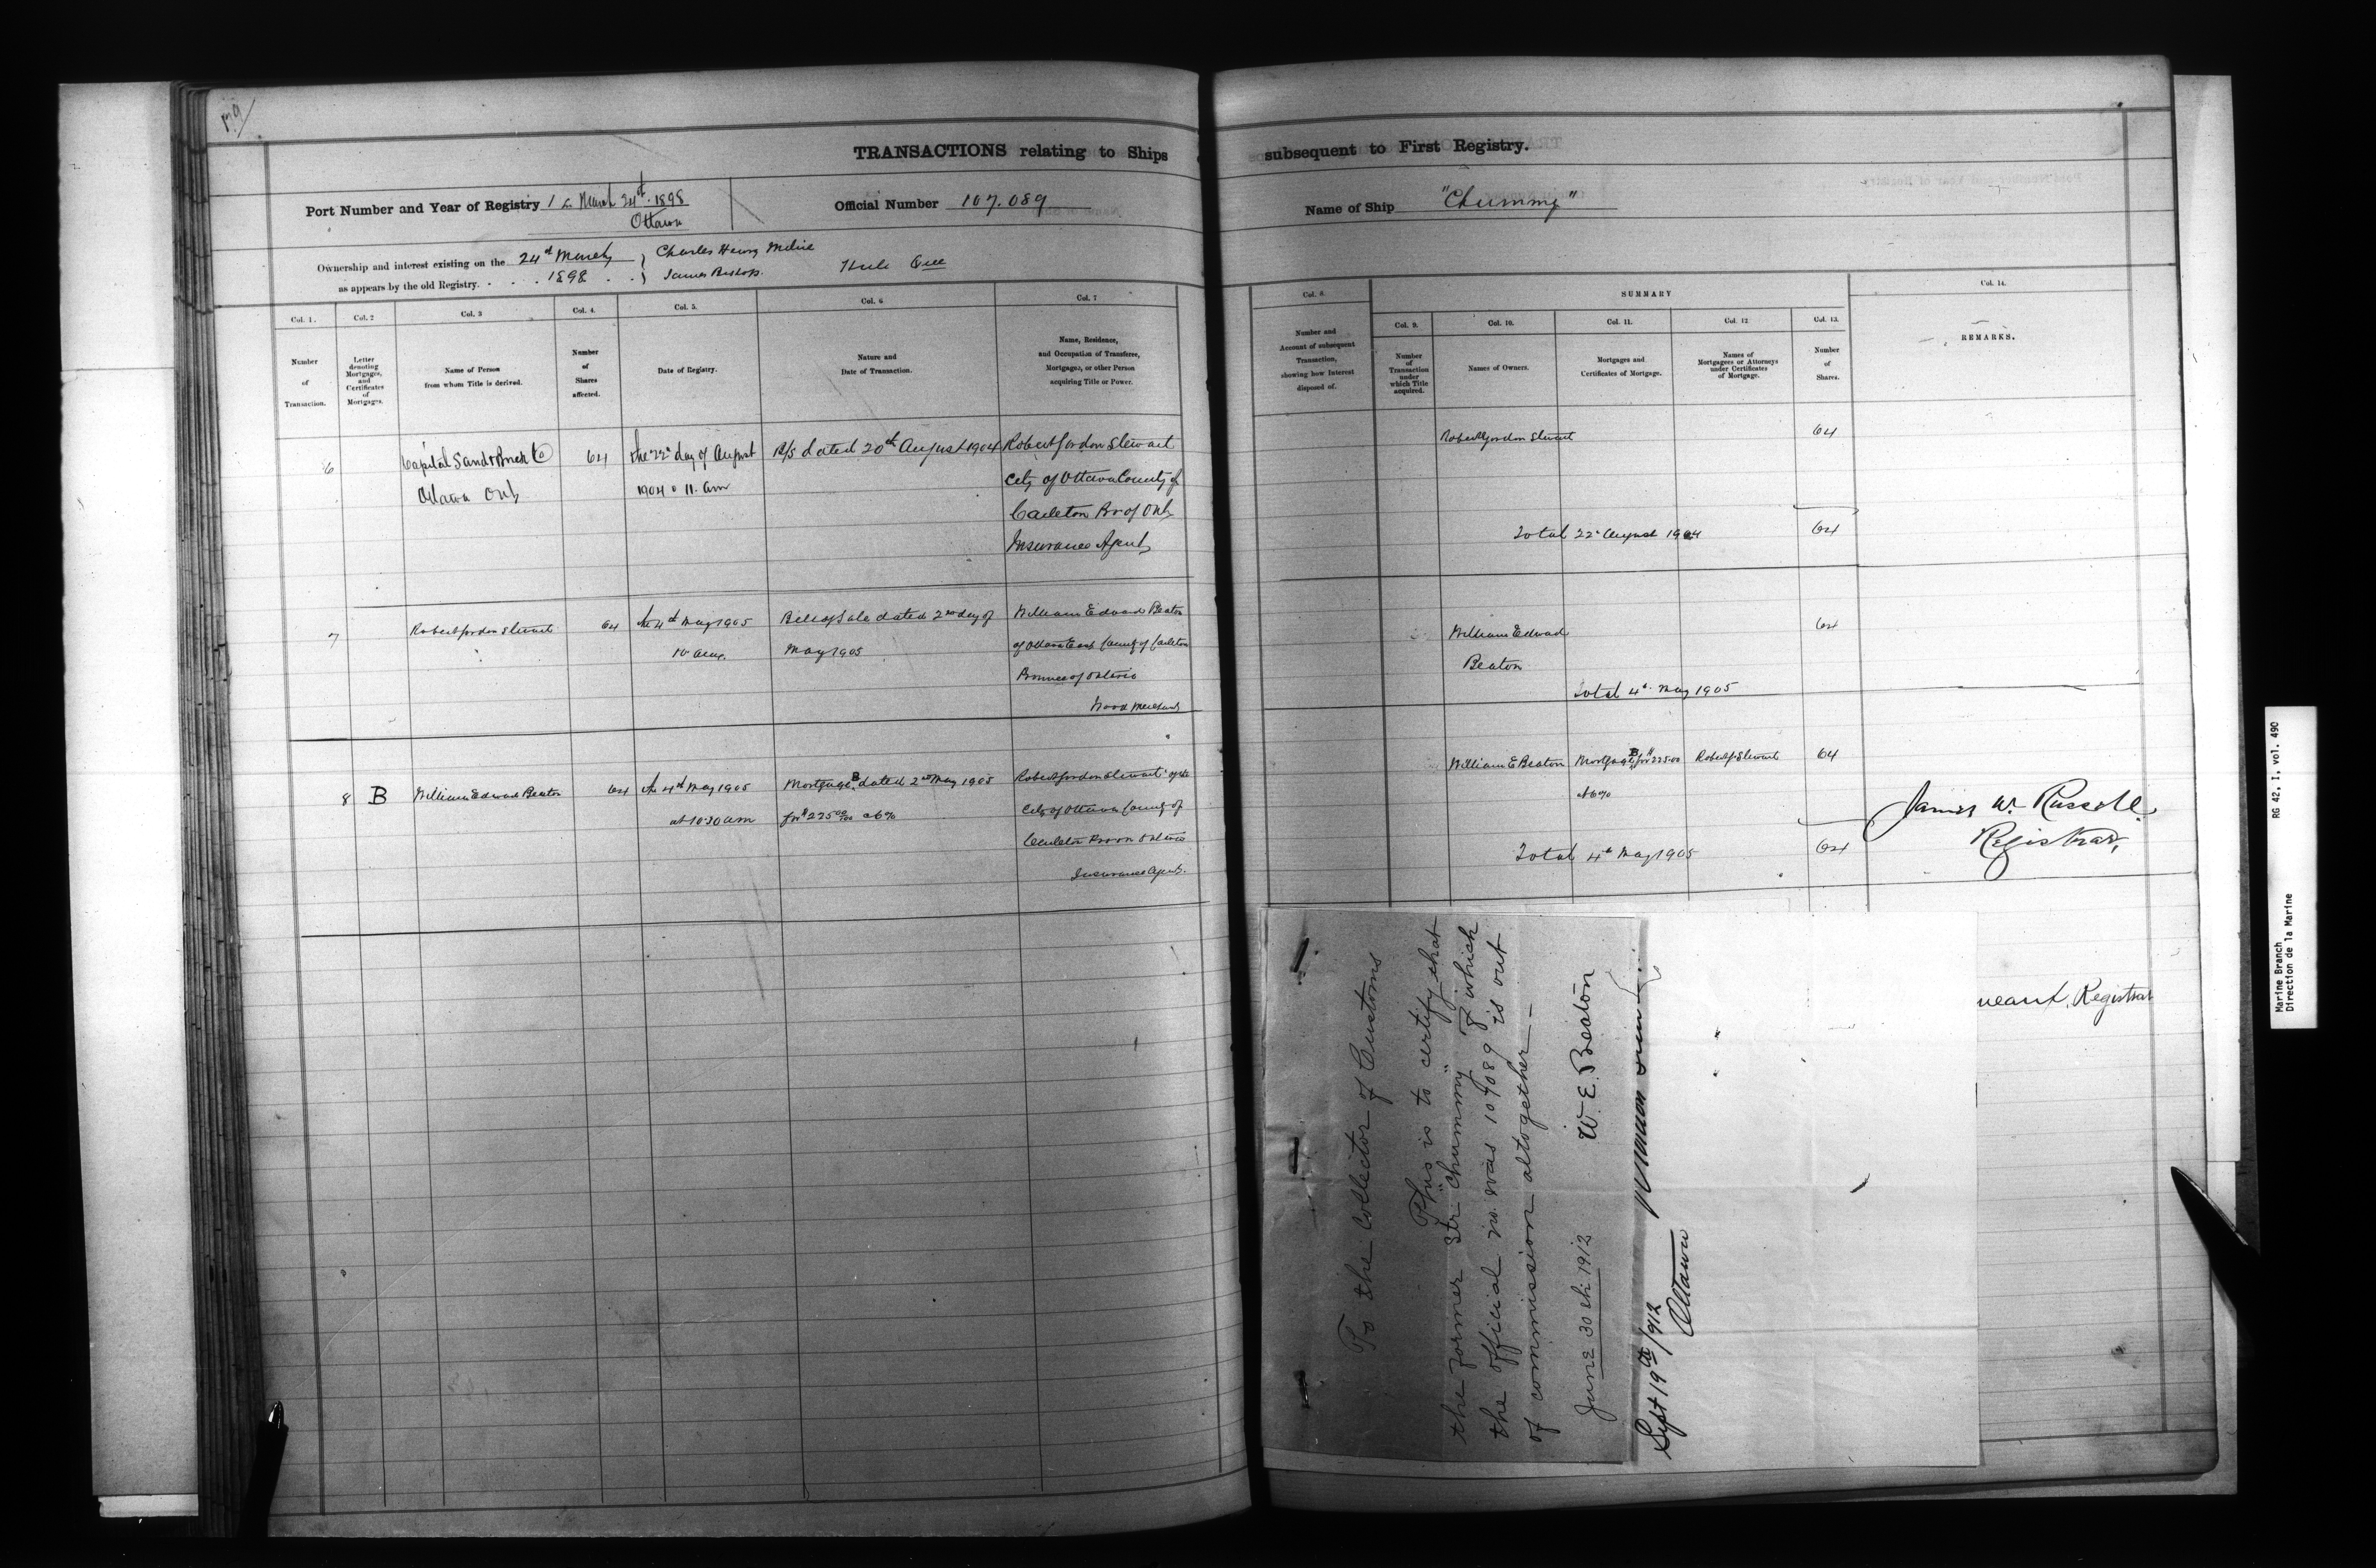 179
TRANSACTIONS relating to Ships subsequent to First Registry.
Port Number and Year of Registry 1 March 24th 1898
Ottawa
Official Number 107.089
Name of Ship "Chummy"
Ownership and interest existing on the 24th March
as appears by the old Registry. 1898
Charles Henry
James Bishop.
Hull Que
Col. 1.
Number
of
Transaction.
Col. 2
Letter
denoting
Mortgages,
and
Certificates
of
Mortgages.
Col. 3
Name of Person
from whom Title is derived.
Col. 4.
Number
of
Shares
affected.
Col. 5.
Date of Registry.
Col. 6
Nature and
Date of Transaction.
Col. 7
Name, Residence,
and Occupation of Transferee,
Mortgagee, or other Person
acquiring Title or Power.
Col. 8.
Number and
Account of subsequent
Transaction,
showing how Interest
disposed of.
SUMMARY
Col. 9.
Number
of
Transaction
under
which Title
acquired.
Col. 10.
Names of Owners.
Col. 11.
Mortgages and
Certificates of Mortgage.
Col. 12
Names of
Mortgagees or Attorneys
under Certificates
of Mortgage.
Col. 13.
Number
of
Shares.
Col. 14.
REMARKS.
6
Capital Sand & Brick Co
Ottawa Ont
64
the 22d day of August
1904 11. am
B/S dated 20th August 1904
Robert Gordon Stewart
City of Ottawa County of
Carleton Prof Ont
Insurance Agent
Robert Gordon Stewart
64
Total 22d August 1904
64
7
Robert Gordon Stewart
64
the 4th May 1905
10 am.
Bill of Sale dated 2nd day of
May 1905
William Edward Beaton
of Ottawa East County of Carleton
Province of Ontario
Wood Merchant
William Edward
Beaton
64
Total 4th May 1905
8
B
William Edward Beaton
64
the 4th May 1905
at 10.30 am
Mortgage B dated 2nd May 1905
for $225 00/100 at 6%
Robert Gordon Stewart of the
City of Ottawa County of
Carleton Prov Ontario
Insurance Agent.
William E Beaton
Mortgage B for $225.00
at 6%
Robert G Stewart
64
Total 4th May 1905
64
James W. Russell
Registrar,
Registrar
To the Collector of Customs
This is to certify that
the former Str "Chummy" of which
the official no. was 107089 is out
of commission altogether —
June 30th 1912
W. E. Beaton
Sept 19th/912
Ottawa
Marine Branch
Direction de la Marine
RG 42, I, vol. 490